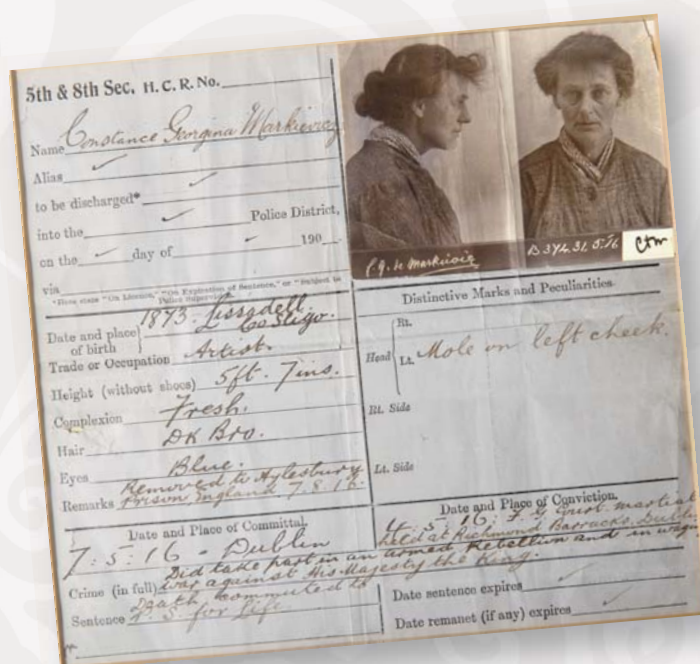 5th & 8th Sec. H. C. R. No.
Name Constance Georgina Markievicz
Alias
to be discharged*
into the Police District,
on the day of 190
via
*Here state "On Licence," "On Expiration of Sentence," or "Subject to
Police Supervision."
Date and place of birth 1873. Lissadell.
Co Sligo.
Trade or Occupation Artist.
Height (without shoes) 5ft. 7ins.
Complexion Fresh.
Hair DK Bro.
Eyes Blue.
Remarks Removed to Aylesbury
Prison, England 7.8.16.
C. G. de Markievicz
B 374.31.5.16
Ctm
Distinctive Marks and Peculiarities
Head
Rt.
Lt. Mole on left cheek.
Rt. Side
Lt. Side
Date and Place of Committal.
7:5:16 - Dublin
Date and Place of Conviction.
4.5.16: F. G. Court-martial
held at Richmond Barracks, Dublin
Crime (in full) Did take part in an armed Rebellion and in
war against His Majesty the King.
Sentence Death, commuted to
P. S. for life
Date sentence expires
Date remanet (if any) expires